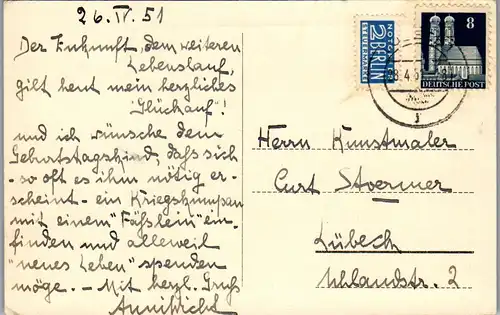 26. IV. 51
Der Zukunft, dem weiteren
Lebenslauf,
gilt heut mein herzliches
"Glückauf"!
und ich wünsche dem
Geburtstagskind, daß sich
- so oft es ihm nötig er-
scheint - ein Kriegskumpan
mit einem "Fäßlein" ein-
finden und alleweil
"neues Leben" spenden
möge. - Mit herzl. Gruß
NOTOPFER
2 BERLIN
STEUERMARKE
8
DEUTSCHE POST
Herrn Kunstmaler
Curt Stoermer
Lübeck
Uhlandstr. 2